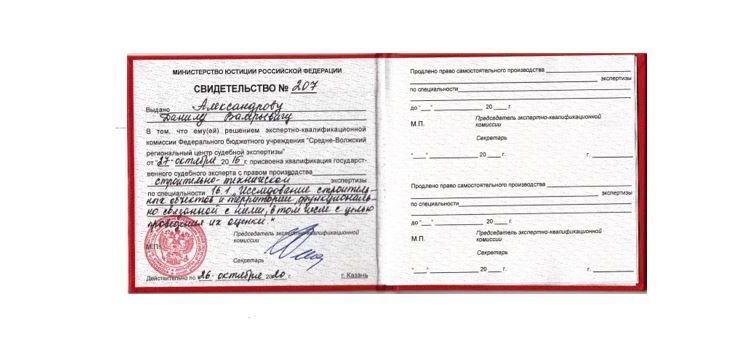 МИНИСТЕРСТВО ЮСТИЦИИ РОССИЙСКОЙ ФЕДЕРАЦИИ
СВИДЕТЕЛЬСТВО № 207
Выдано Александрову
Данилу Валерьевичу
В том, что ему(ей) решением экспертно-квалификационной
комиссии Федерального бюджетного учреждения "Средне-Волжский
региональный центр судебной экспертизы"
от "27" октября 2016 г. присвоена квалификация государст-
венного судебного эксперта с правом производства
строительно-технической экспертизы
по специальности 16.1 "Исследование строитель
ных объектов и территории, функциональ
но связанной с ними, в том числе с целью
проведения их оценки"
Председатель экспертно-квалификационной
комиссии
М.П.
Секретарь
Действительно по "26" октября 2020 г. г. Казань
Продлено право самостоятельного производства
экспертизы
по специальности
до "__" 20 __ г.
М.П. Председатель экспертно-квалификационной
комиссии
Секретарь
"__" 20 __ г. ( )
Продлено право самостоятельного производства
экспертизы
по специальности
до "__" 20 __ г.
М.П. Председатель экспертно-квалификационной
комиссии
Секретарь
"__" 20 __ г. ( )